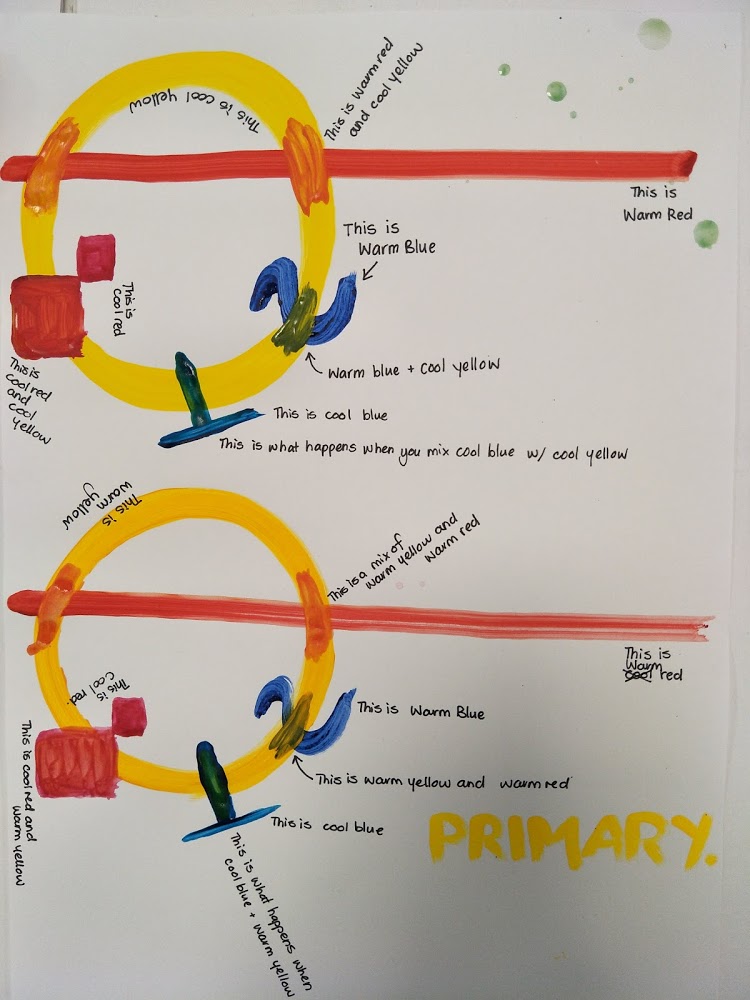 This is cool yellow
This is warm red
and cool yellow
This is
Warm Red
This is
Warm Blue
This is
cool red
This is
cool red
and
cool
yellow
Warm blue + cool yellow
This is cool blue
This is what happens when you mix cool blue w/ cool yellow
This is
warm
yellow
This is a mix of
warm yellow and
warm red
This is
Warm
cool red
This is
cool red.
This is Warm Blue
This is cool red and
warm yellow
This is warm yellow and warm red
This is cool blue
PRIMARY.
This is what happens when
cool blue + warm yellow